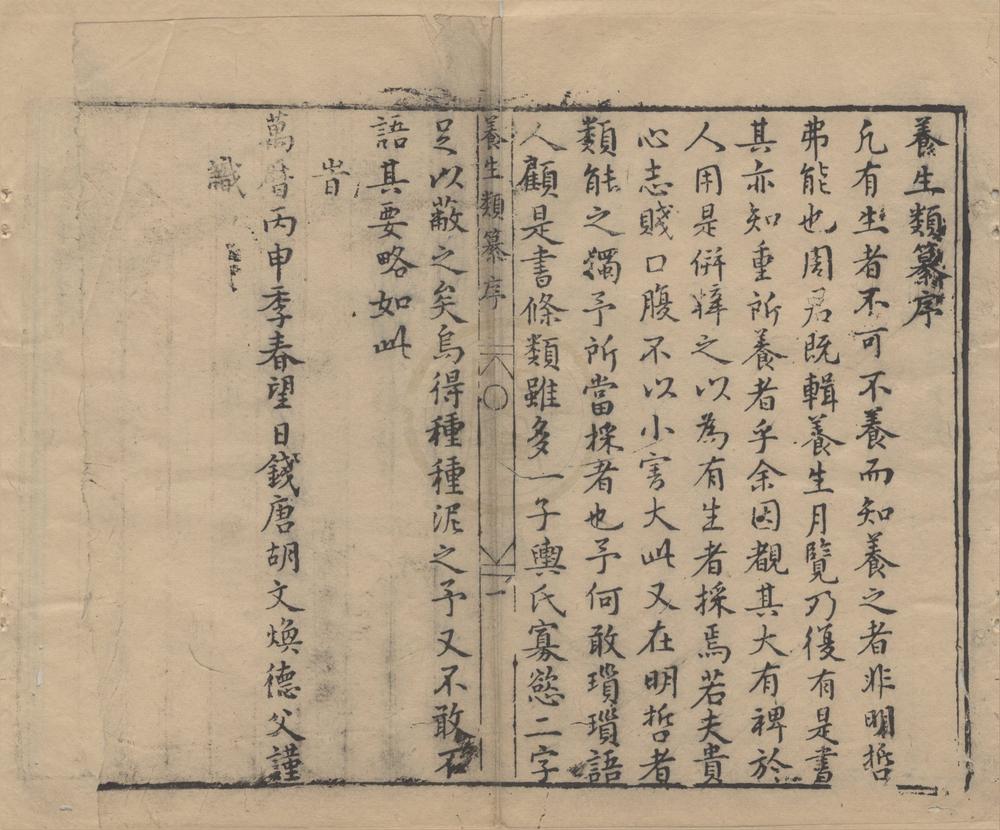 養生類纂序
凡有生者不可不養而知養之者非明哲
弗能也周君既輯養生月覽乃復有是書
其亦知重所養者乎余因覩其大有裨於
人用是併梓之以為有生者採焉若夫貴
心志賤口腹不以小害大此又在明哲者
類能之獨予所當採者也予何敢瑣瑣語
人顧是書條類雖多一子輿氏寡慾二字
養生類纂序
一
足以蔽之矣烏得種種泥之予又不敢不
語其要略如此
旹
萬曆丙申季春望日錢唐胡文煥德父謹
識